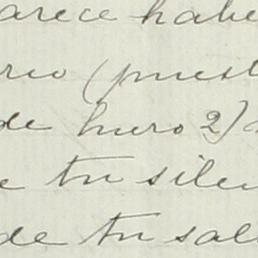 arece habe
reo (puest
de huero 2) 
e tu silen
de tu sal